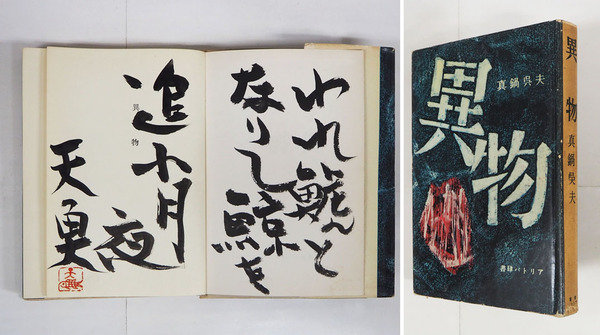 われ鯱と
なりて鯨を
追ふ月
夜
天魚
異物
異物
真鍋呉夫
書肆パトリア
異物 真鍋呉夫